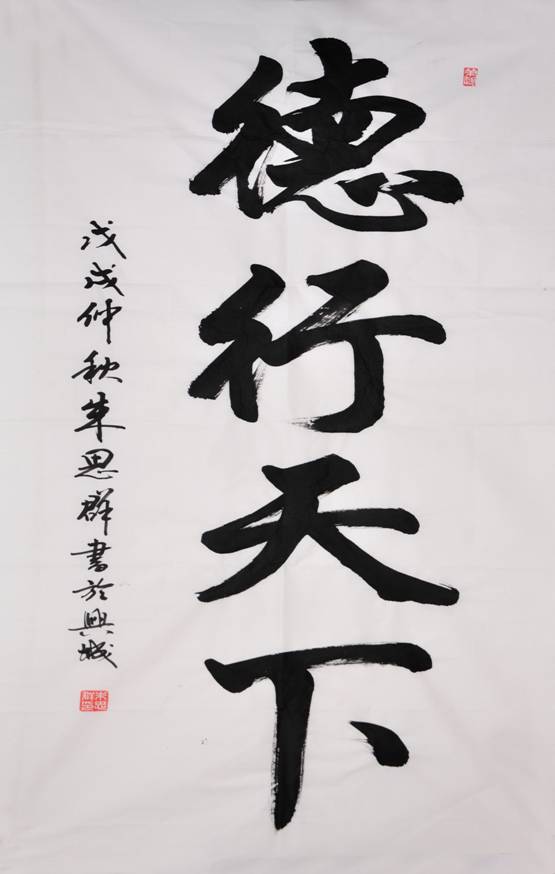 德行天下
戊戌仲秋朱思群書於興城